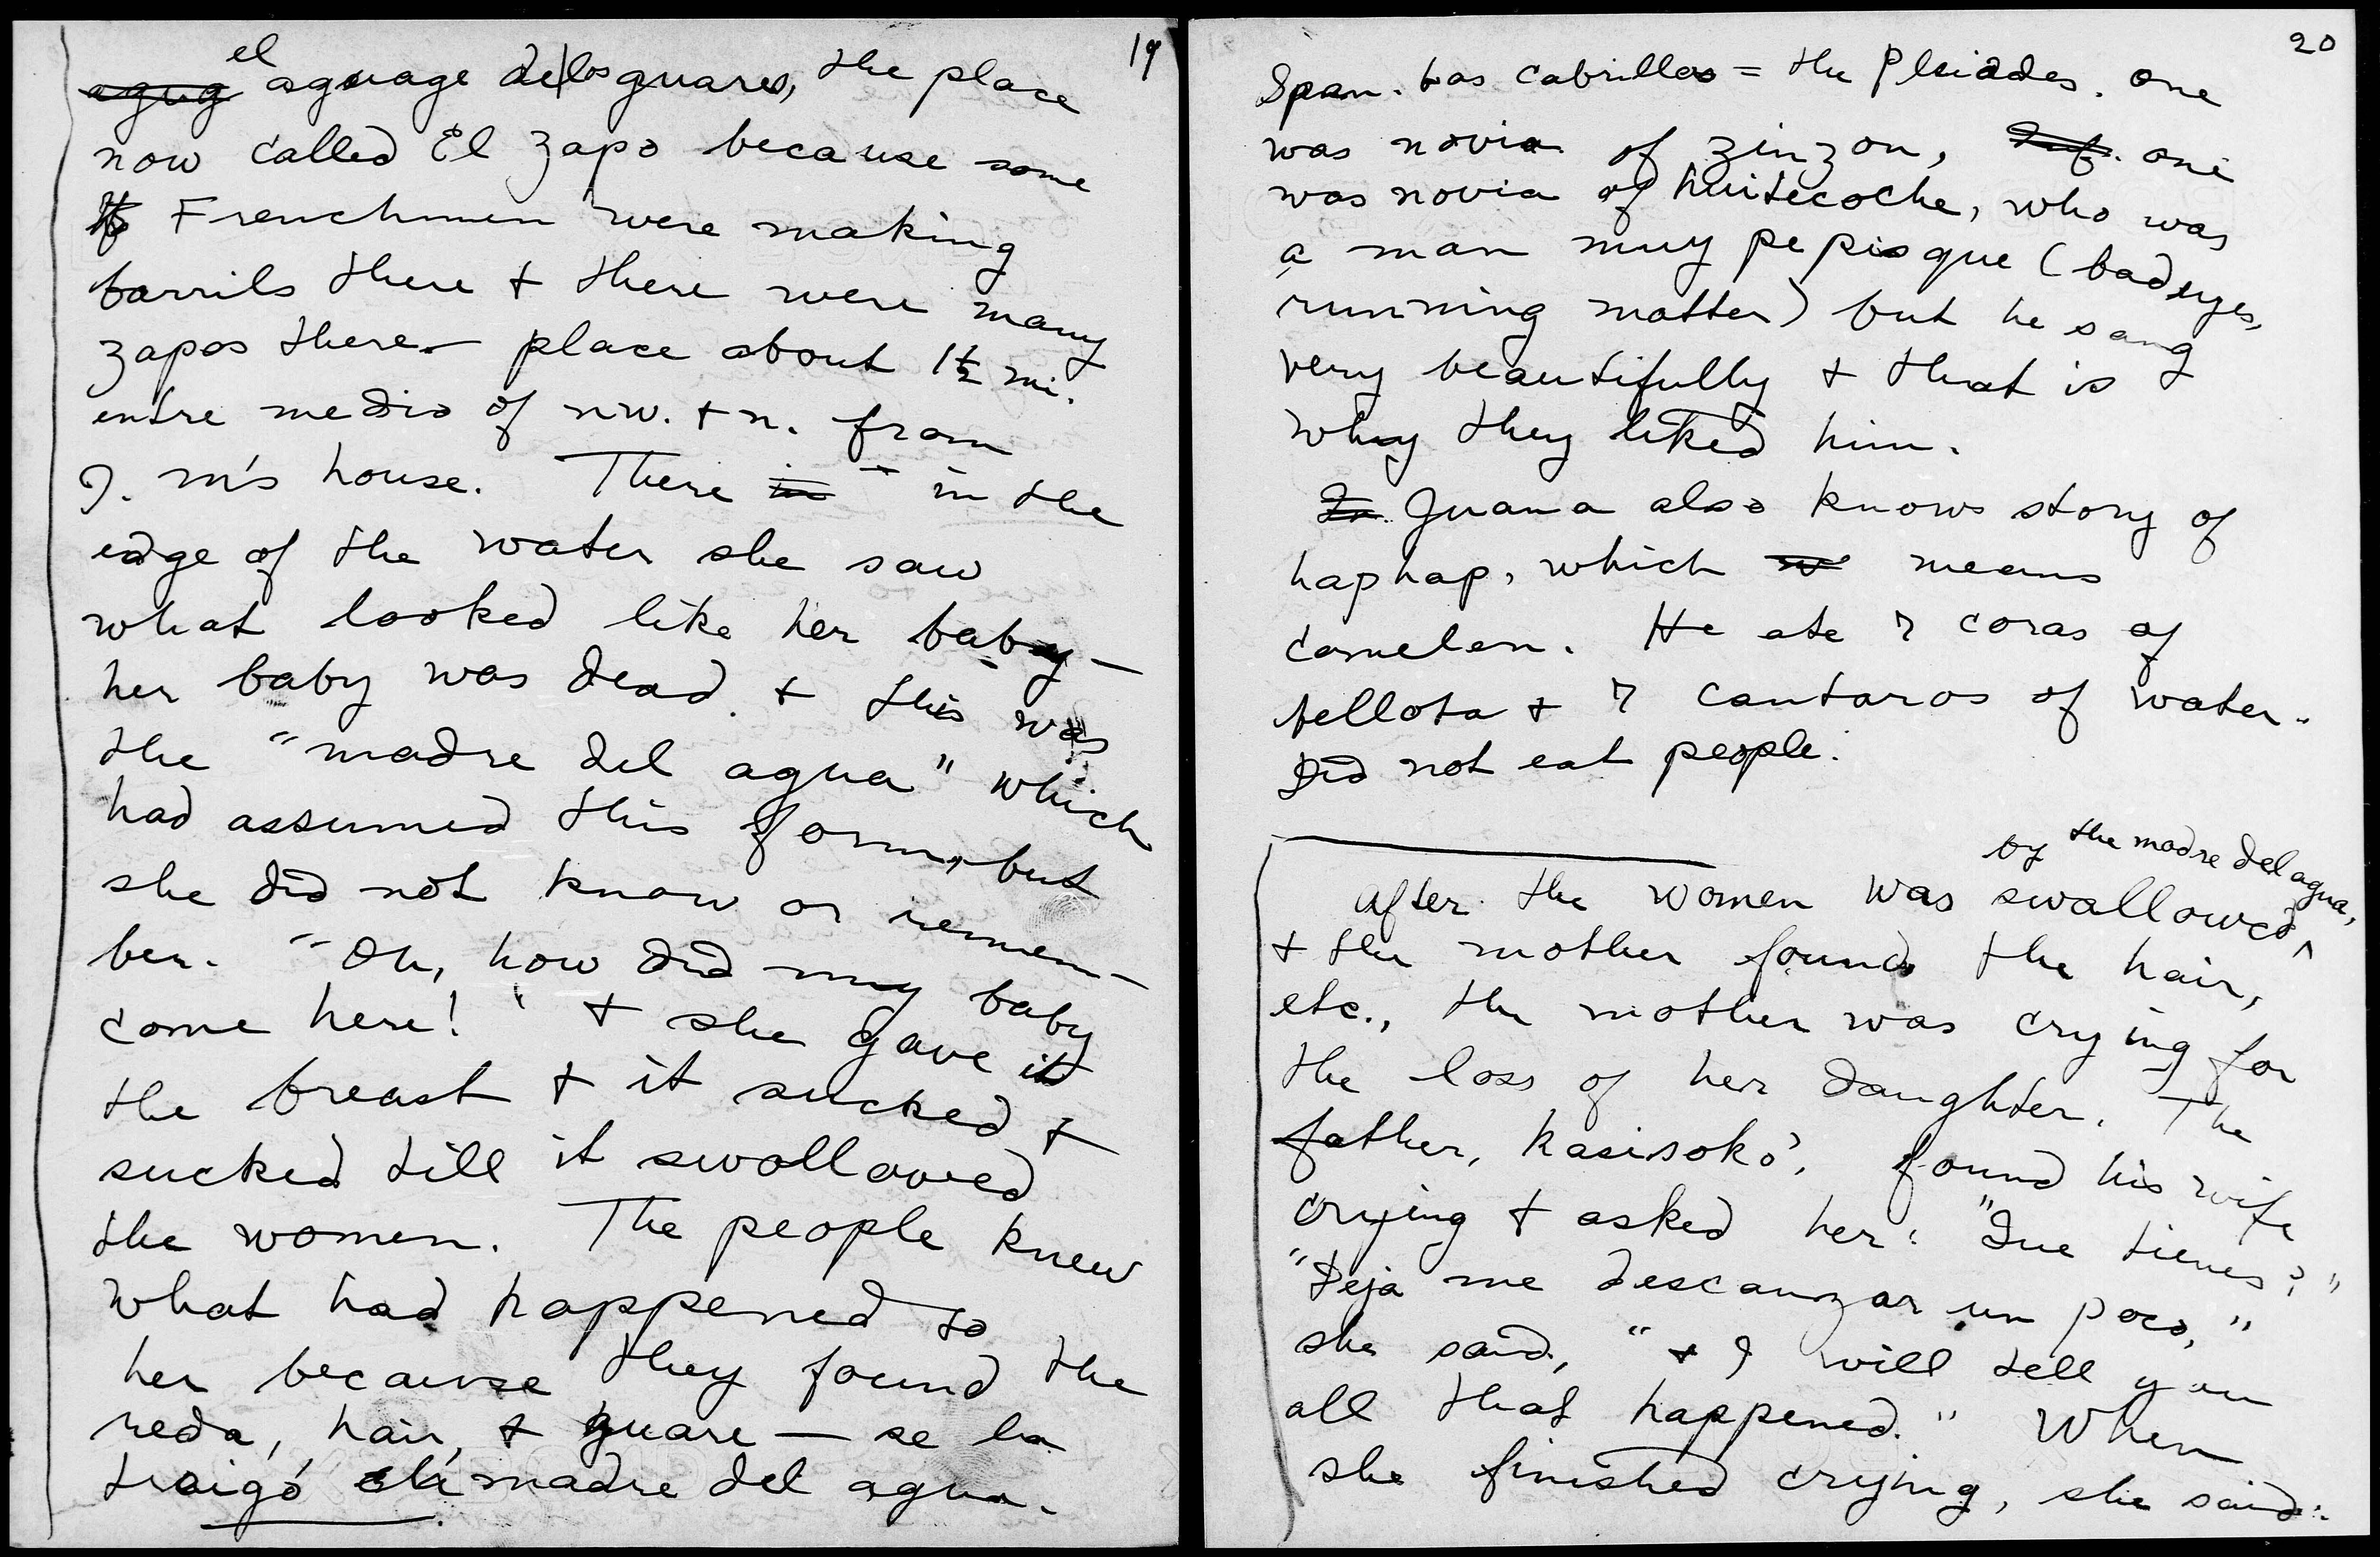 19
el
agug aguage de los guares, the place
now called El zapo because some
Frenchmen were making
barrils there + there were many
zapos there - place about 1½ mi.
entre medio of nw. + n. from
J. m's house. There in - in the
edge of the water she saw
what looked like her baby -
her baby was dead. + this was
the "madre del agua" which
had assumed this form, but
she did not know or remem-
ber. "Oh, how did my baby
come here!" + she gave it
the breast + it sucked +
sucked till it swallowed
the women. The people knew
what had happened to
her because they found the
reda, hair, + guare - se la
traigó la madre del agua.
20
Span. Las Cabrillas = the Pleiades. One
was novia of zinzon, Inf. one
was novia of huitecoche, who was
a man muy pepisque (bad eyes,
running matter) but he sang
very beautifully + that is
why they liked him.
In. Juana also knows story of
haphap, which w means
comelon. He ate 7 coras of
bellota + 7 cantaros of water.
Did not eat people.
by the madre del agua,
After the women was swallowed ^
+ the mother found the hair,
etc., the mother was crying for
the loss of her daughter. The
father, kasisoko', found his wife
crying + asked her: "Que tienes?"
"Deja me descanzar un poco,"
she said, "+ I will tell you
all that happened." When
she finished crying, she said: